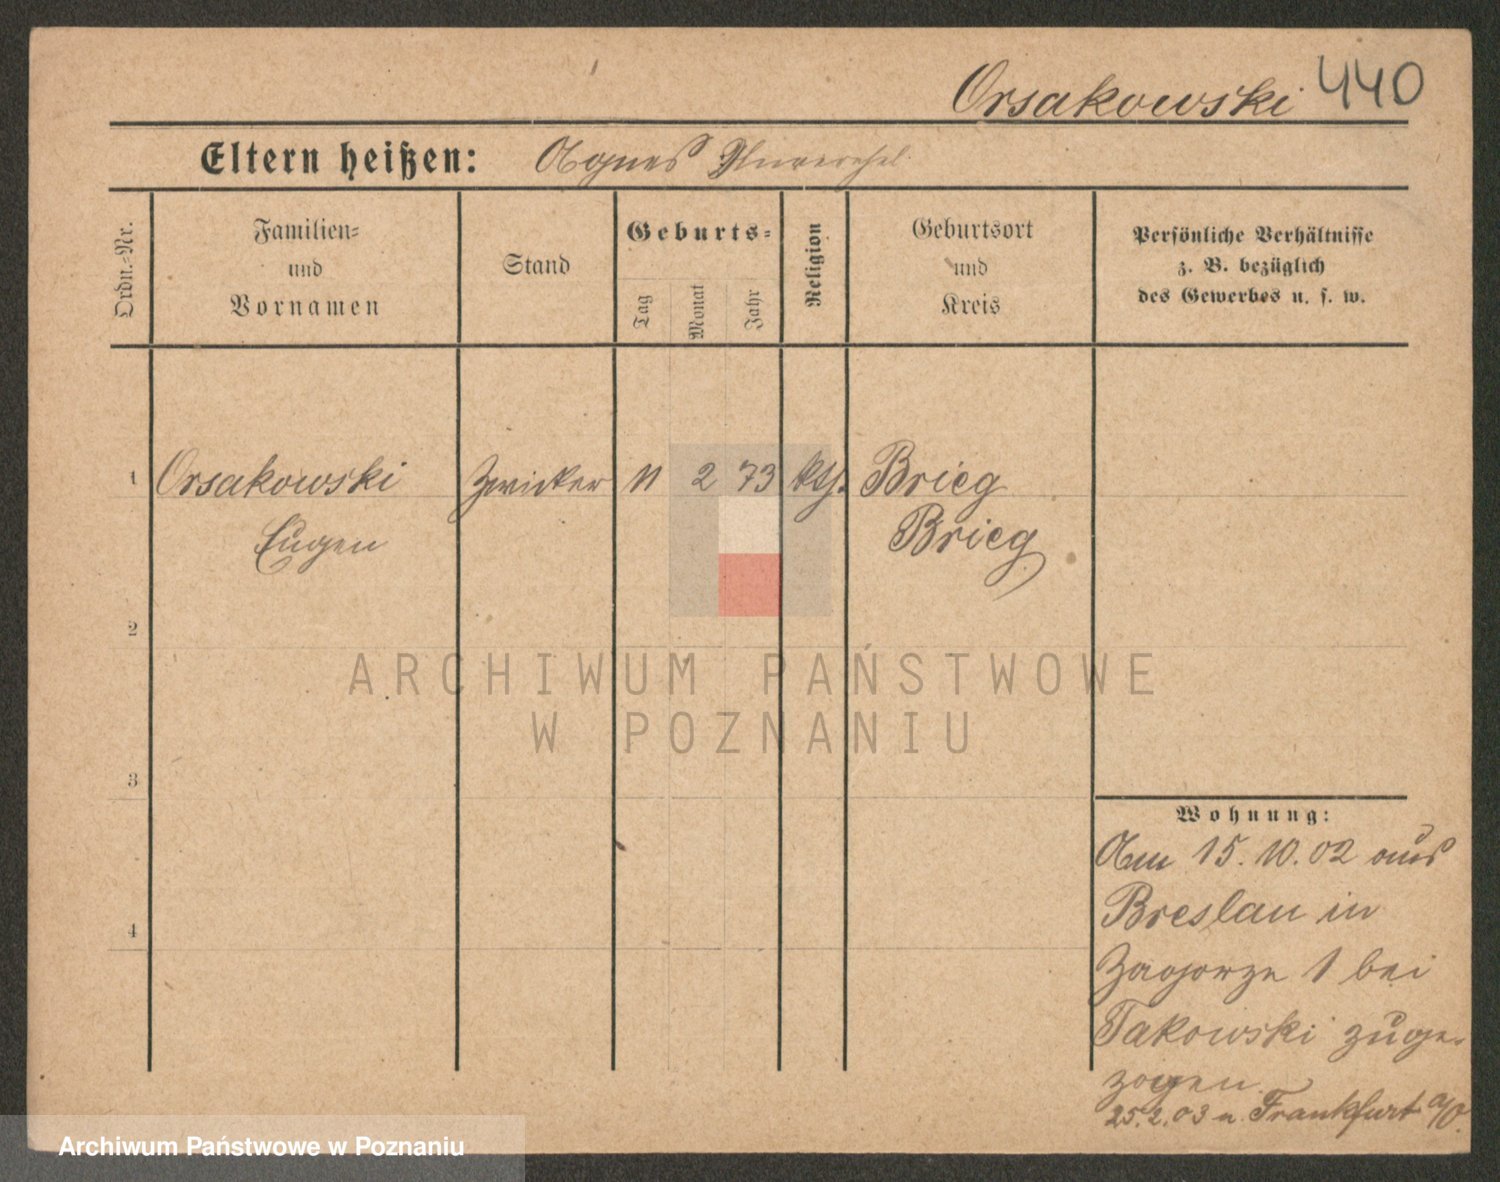 Orsakowski 440
Eltern heißen: Agnes
Ordn.-Nr.
Familien-
und
Vornamen
Stand
Geburts-
Tag
Monat
Jahr
Religion
Geburtsort
und
Kreis
Persönliche Verhältnisse
z. B. bezüglich
des Gewerbes u. s. w.
1 Orsakowski Zwicker 11 2 73 kth. Brieg
Eugen Brieg
2
ARCHIWUM PAŃSTWOWE
W POZNANIU
3
Wohnung:
Am 15. 10. 02 aus
4 Breslau in
Zagorze 1 bei
Takowski zuge-
zogen
25. 2. 03 n. Frankfurt a/O.
Archiwum Państwowe w Poznaniu